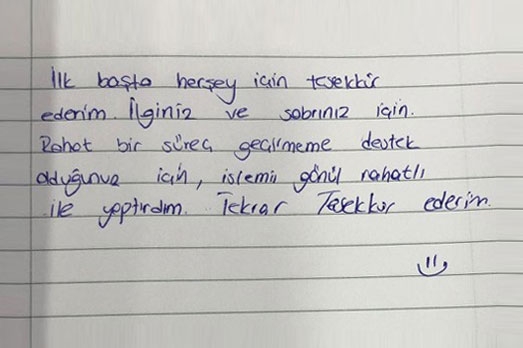 İlk başta herşey için teşekkür
ederim. İlginiz ve sabrınız için.
Rahat bir süreç geçirmeme destek
olduğunuz için, işlemi gönül rahatlı
ile yaptırdım. Tekrar Teşekkür ederim.